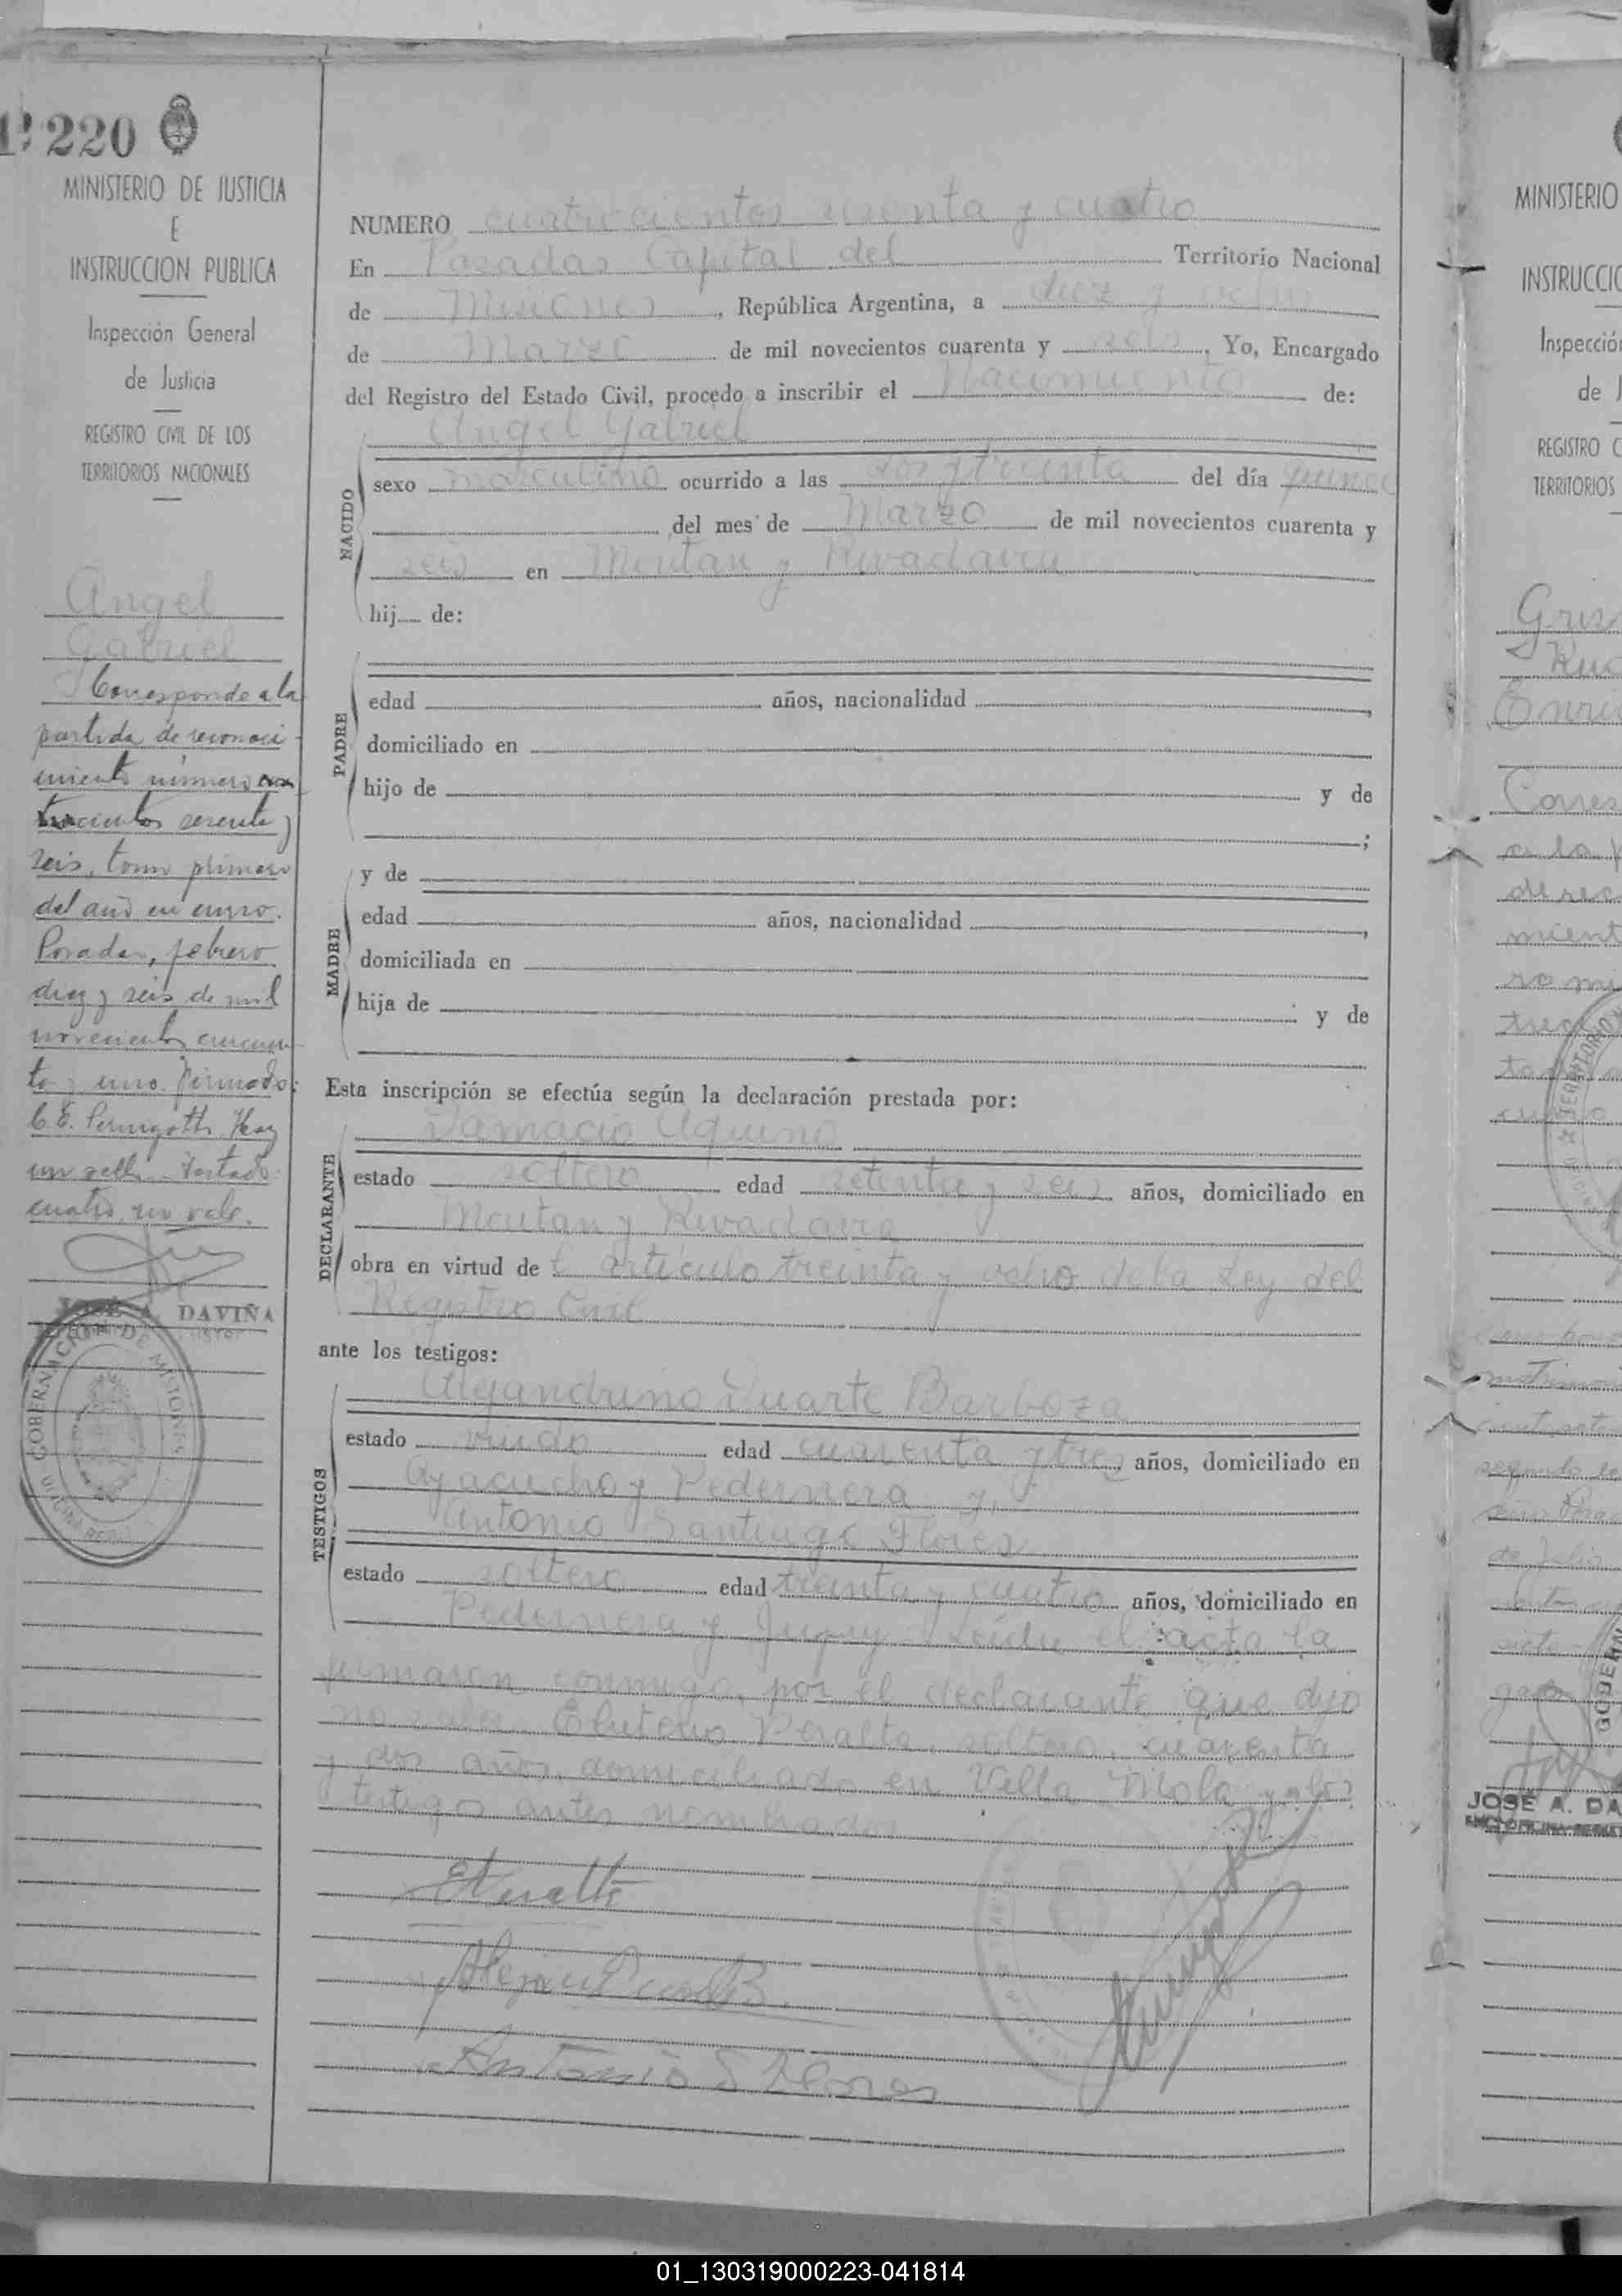 220
MINISTERIO DE JUSTICIA
E
INSTRUCCION PUBLICA
Inspección General
de Justicia
REGISTRO CIVIL DE LOS
TERRITORIOS NACIONALES
Angel
Gabriel
Corresponde a la
partida de reconoci-
miento número
trescientos sesenta y
seis, tomo primero
del año en curso.
Posadas, febrero
diez y seis de mil
novecientos cincuen
ta y uno. Firmado:
C. E. Hay
un sello. Testado:
cuatro, no vale.
JOSÉ A. DAVIÑA
GOBERNACION DE MISIONES
NUMERO cuatrocientos y cuatro
En Posadas Capital del Territorio Nacional
de Misiones, República Argentina, a diez y ocho
de Marzo de mil novecientos cuarenta y seis, Yo, Encargado
del Registro del Estado Civil, procedo a inscribir el Nacimiento de:
Angel Gabriel
NACIDO
sexo masculino ocurrido a las dos y treinta del día quince
del mes de Marzo de mil novecientos cuarenta y
seis en y Rivadavia
hij de:
PADRE
edad años, nacionalidad ,
domiciliado en
hijo de y de
;
MADRE
y de
edad años, nacionalidad ,
domiciliada en
hija de y de
Esta inscripción se efectúa según la declaración prestada por:
Damacio Aquino
DECLARANTE
estado soltero edad setenta y seis años, domiciliado en
y Rivadavia
obra en virtud del artículo treinta y ocho de la Ley del
Registro Civil
ante los testigos:
TESTIGOS
Alejandrino Duarte Barboza
estado viudo edad cuarenta y tres años, domiciliado en
Ayacucho y Pedernera y,
Antonio Santiago Flores
estado soltero edad treinta y cuatro años, domiciliado en
Pedernera y Jujuy. Leída el acta la
firmaron conmigo, por el declarante que dijo
no saber Eleuterio Peralta, soltero, cuarenta
y dos años, domiciliado en Villa Mola y los
testigos antes nombrados
Antonio S Flores
MINISTERIO
INSTRUCCIO
Inspección
de J
REGISTRO C
TERRITORIOS
Corres
a la p
de rec
mient
JOSÉ A. DA
01_130319000223-041814